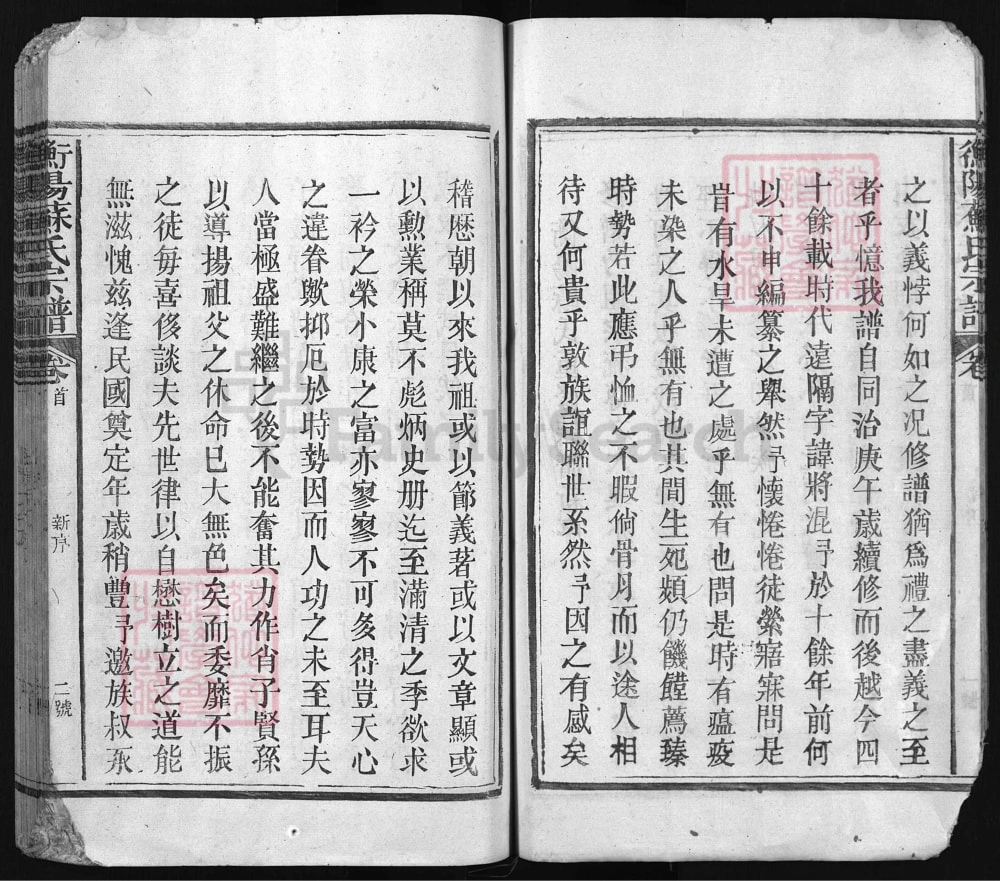 衡陽蘇氏宗譜 卷
之以義悖何如之况修譜猶爲禮之盡義之至
者乎憶我譜自同治庚午歲續修而後越今四
十餘載時代遠隔字諱將混予於十餘年前何
以不申編纂之舉然予懷惓惓徒縈寤寐問是
昔有水旱未遭之處乎無有也問是時有瘟疫
未染之人乎無有也其間生死頻仍饑饉薦臻
時勢若此應弔恤之不暇倘骨月而以途人相
待又何貴乎敦族誼聯世系然予因之有感矣
稽歴朝以來我祖或以節義著或以文章顯或
以勳業稱莫不彪炳史册迄至滿清之季欲求
一衿之榮小康之富亦寥寥不可多得豈天心
之違眷歟抑厄於時勢因而人功之未至耳夫
人當極盛難繼之後不能奮其力作肖子賢孫
以導揚祖父之休命巳大無色矣而委靡不振
之徒毎喜侈談夫先世律以自懋樹立之道能
無滋愧兹逢民國奠定年歲稍豐予邀族叔承
衡陽蘇氏宗譜 卷首 新序 二號
FamilySearch